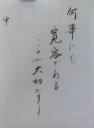 何事にも
寛容である
ことが大切なり
中